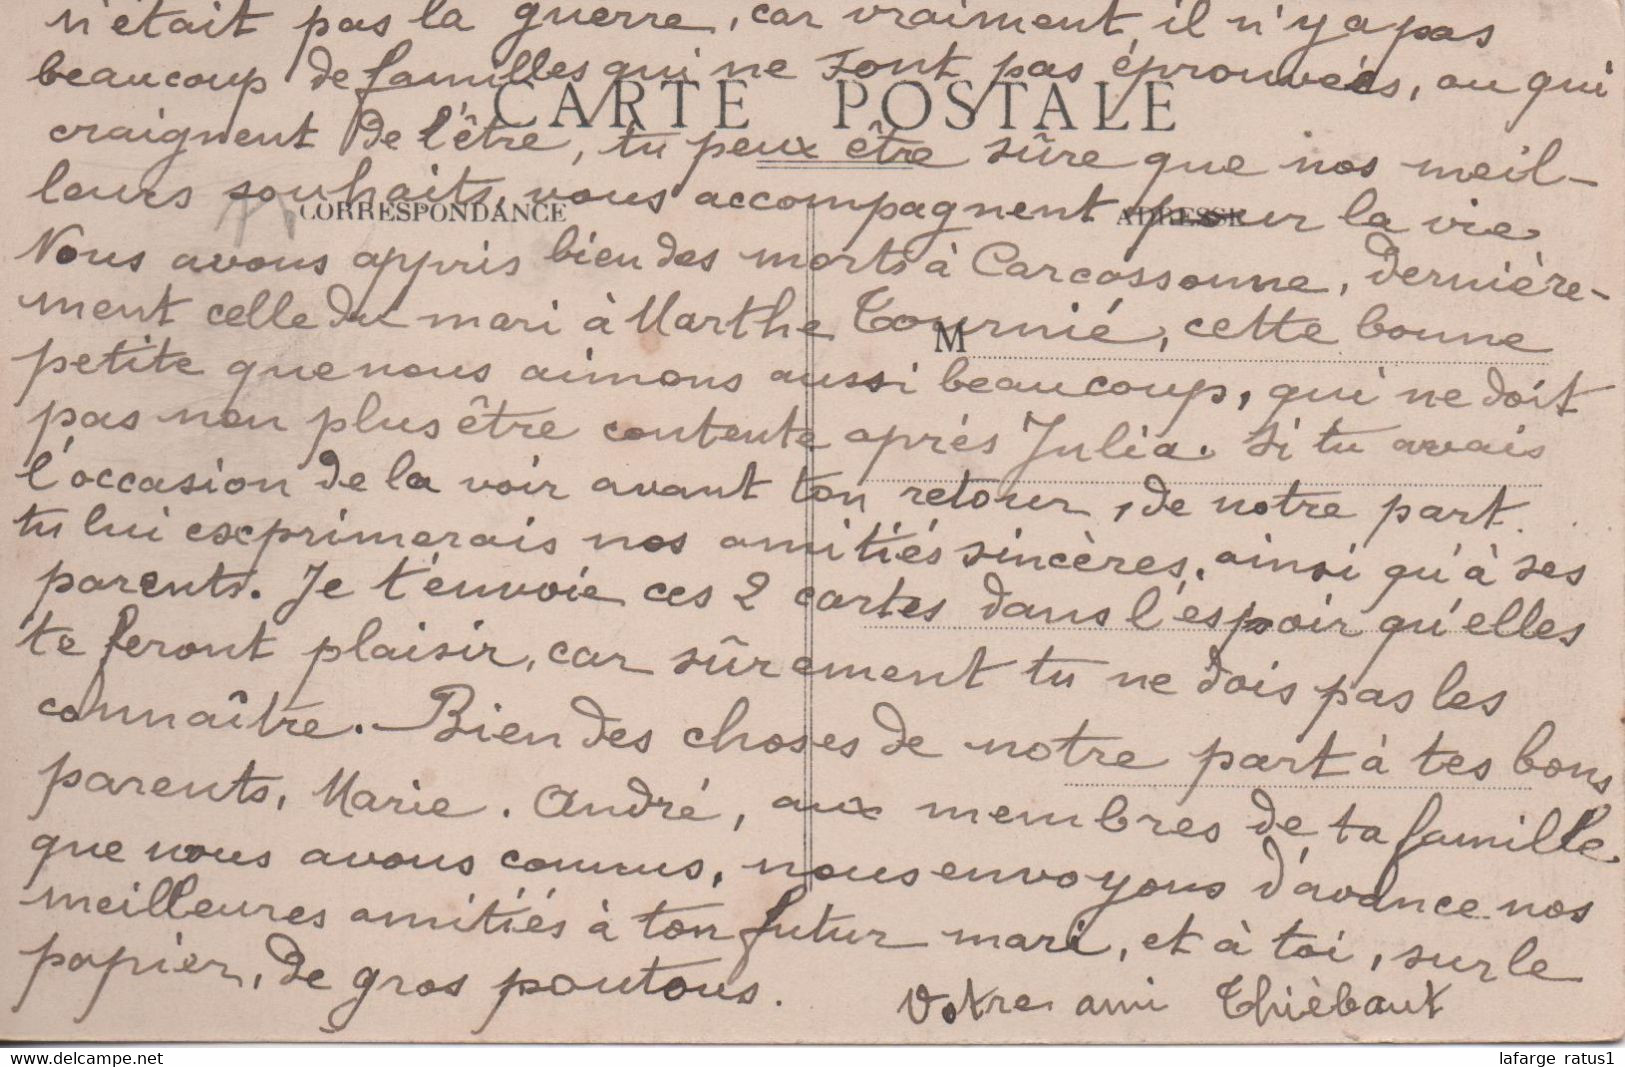 n'était pas la guerre, car vraiment, il n'y a pas
beaucoup de familles qui ne sont pas éprouvées, ou qui
CARTE POSTALE
craignent de l'être, tu peux être sûre que nos meil-
leurs souhaits, vous accompagnent pour la vie.
CORRESPONDANCE
ADRESSE
Nous avons appris bien des morts à Carcassonne, dernière-
ment celle du mari à Marthe Tournié, cette bonne
M
petite que nous aimons aussi beaucoup, qui ne doit
pas non plus être contente après Julia. Si tu avais
l'occasion de la voir avant ton retour, de notre part
tu lui exprimerais nos amitiés sincères, ainsi qu'à ses
parents. Je t'envoie ces 2 cartes dans l'espoir qu'elles
te feront plaisir, car sûrement tu ne dois pas les
connaître. Bien des choses de notre part à tes bons
parents, Marie. André, aux membres de ta famille
que nous avons connus, nous envoyons d'avance nos
meilleures amitiés à ton futur mari, et à toi, sur le
papier, de gros poutous.
Votre ami Thièbaut
www.delcampe.net
lafarge_ratus1